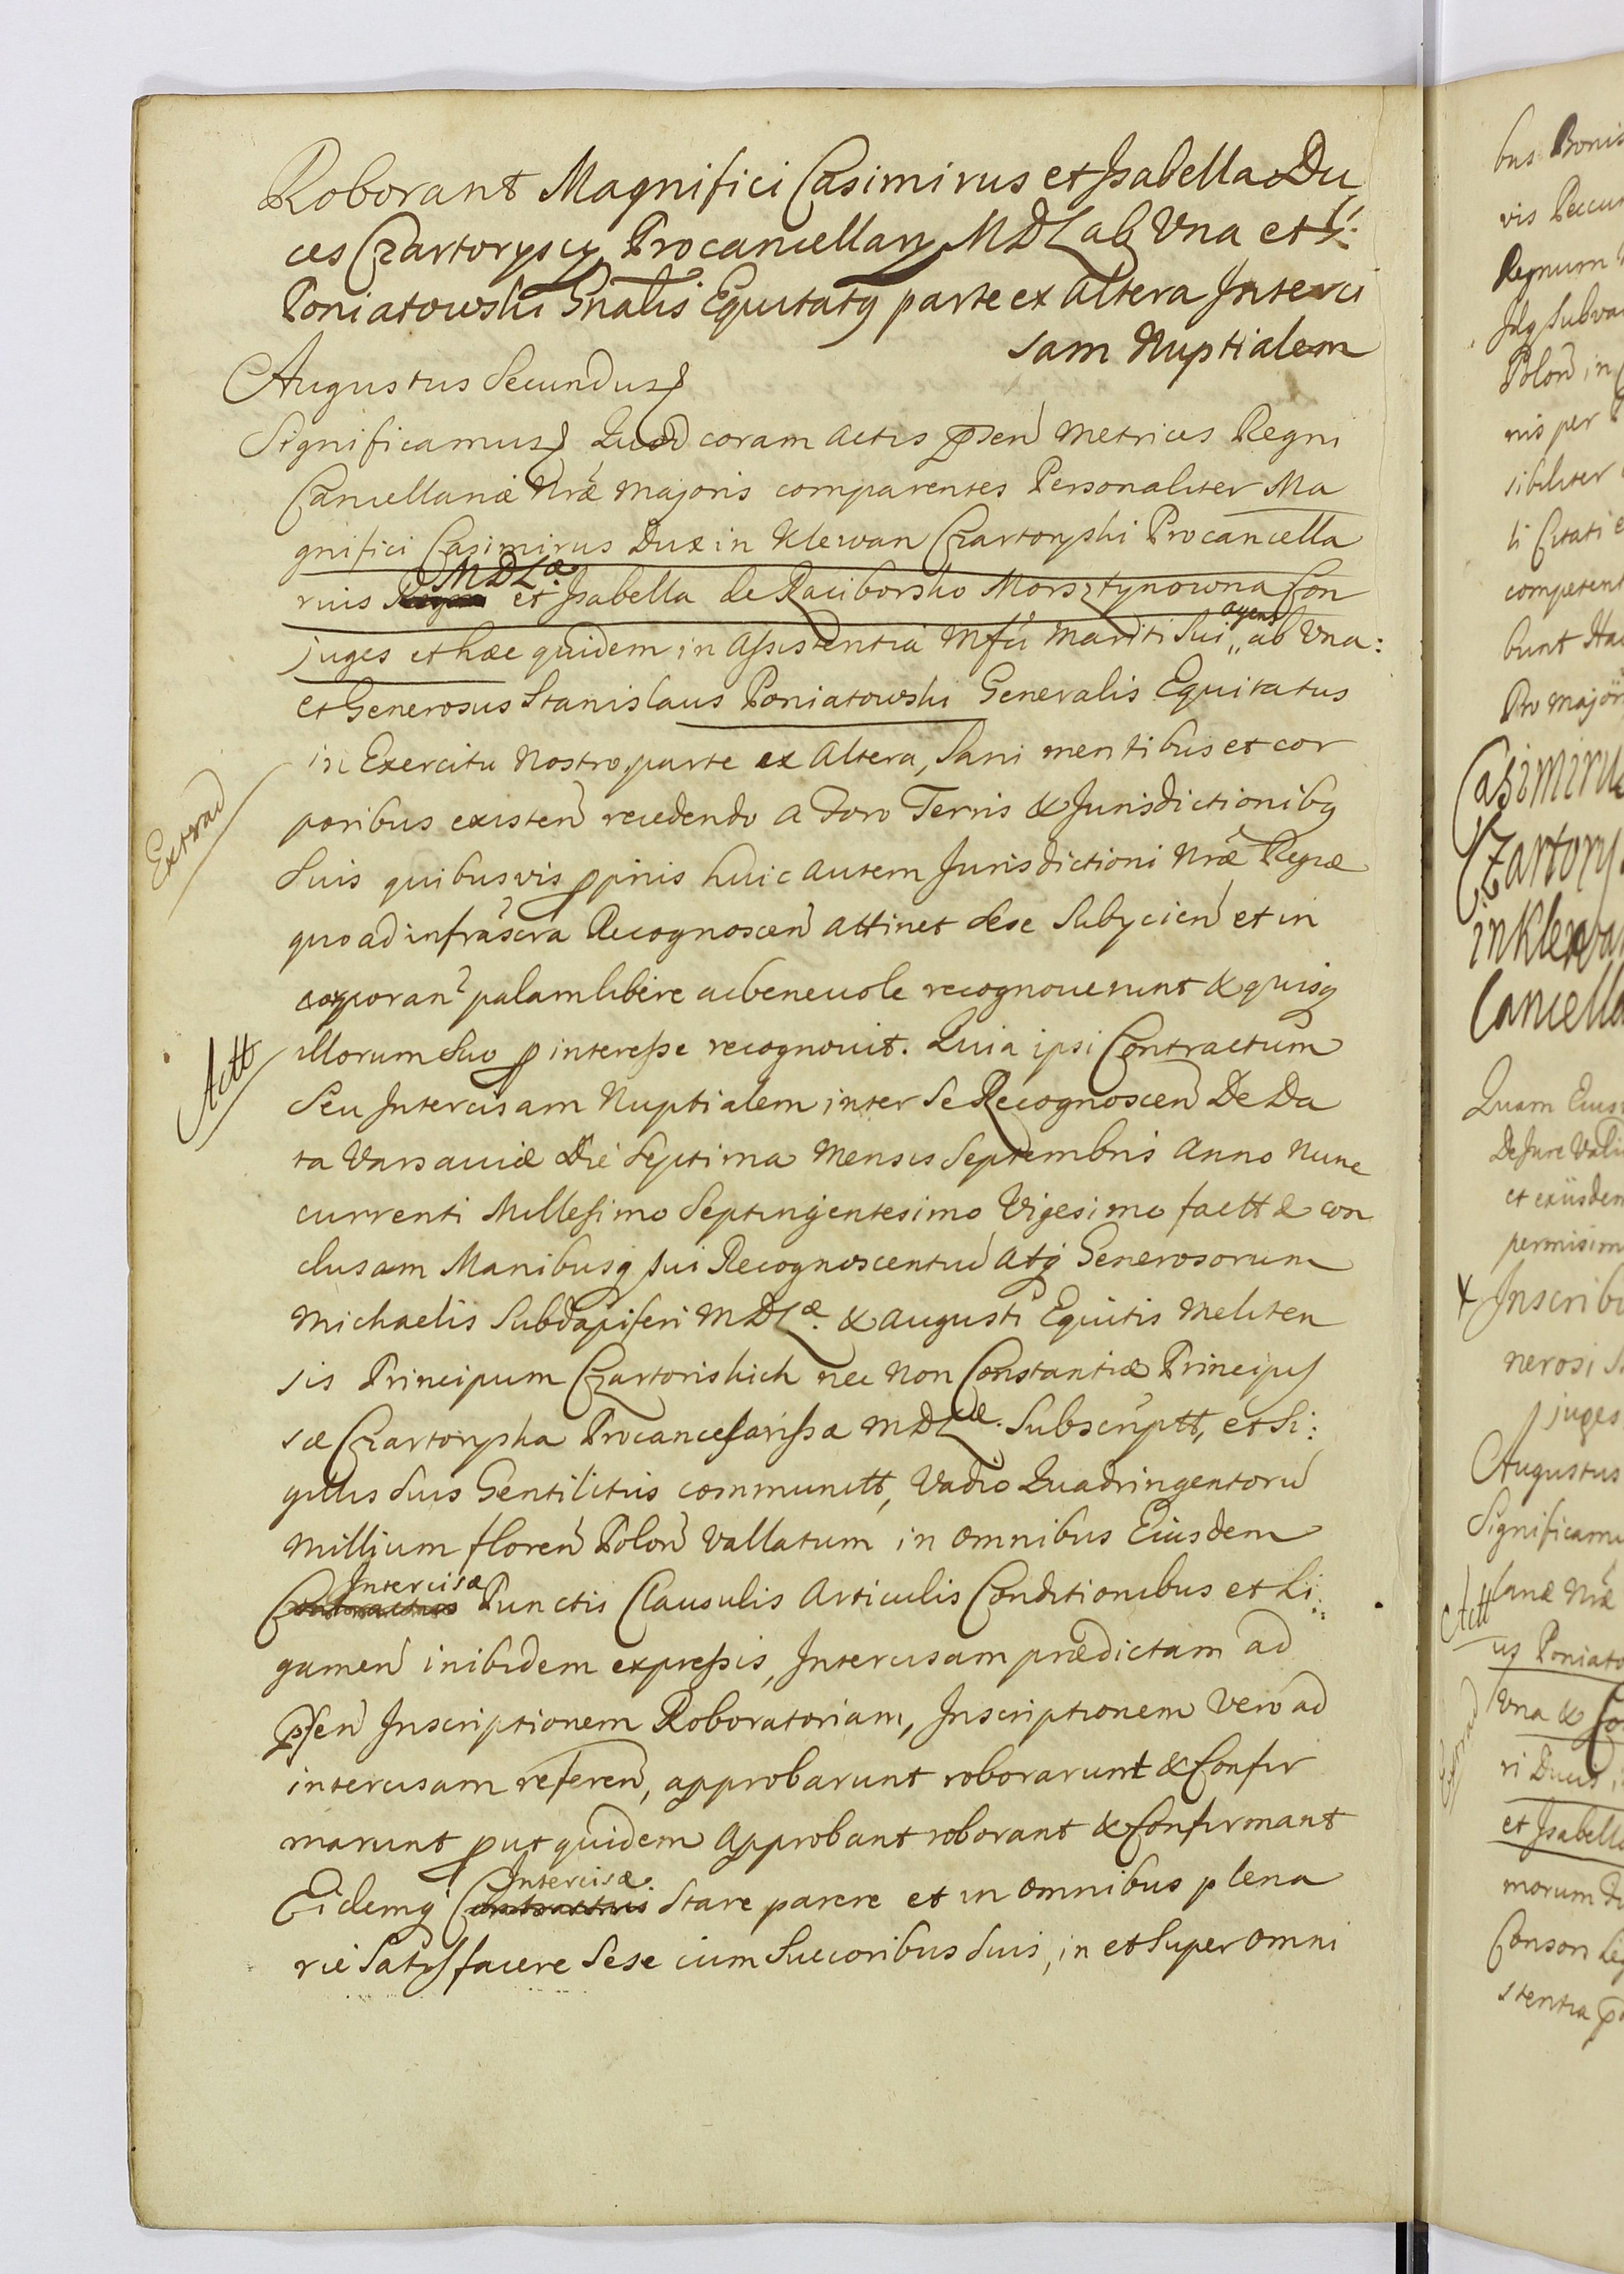 Roborant Magnifici Casimirus et Isabella Du
ces Czartoryscy Procancellary MDL ab Vna et S:
Poniatowski Gnalis Equitatq parte ex altera Interci
sam Nuptialem
Augustus Secundus
Significamus Quod coram actis psen Metrices Regni
Cancellariæ Nræ majoris comparentes Personaliter Ma
gnifici Casimirus Dux in Klewan Czartoryski Procancella
MDLæ
rius et Isabella de Raciborsko Morsztynowna Con
juges et hæc quidem in assistentia Mfci mariti sui „ agens ab Vna:
et Generosus Stanislaus Poniatowski Generalis Equitatus
in Exercitu nostro parte ex altera, Sani mentibus et cor
poribus existen recedendo a Foro Terris & Jurisdictionibq
Extrad
suis quibusvis ppriis huic autem Jurisdictioni Nræ Regiæ
quo ad infrascra Recognoscen attinet sese Subycien et in
corporan palam libere ac benevole recognoverunt & quisq
Actt
illorum suo p interesse recognovit. Quia ipsi Contractum
Seu Intercisam Nuptialem inter se Recognoscen De Da
ta Varsaviæ Die Septima Mensis Septembris Anno Nunc
currenti Millesimo Septingentesimo Vigesimo factt & con
clusam Manibusq sui Recognoscentiu atq Generosorum
Michaelis Subdapiferi MDLæ. & Augusti Equitis Meliten
sis Principum Czartoriskich nec non Constantiæ Principis
sæ Czartoryska Procancelarissa MDLæ. Subscriptt, et Si:
gillis suis Gentilitiis communitt, Vadio Quadringentoru
millium floren Polon vallatum in omnibus Eiusdem
Intercisæ
Contractus Punctis Clausulis Articulis Conditionibus et Li:
gamen inibidem expressis, Intercisam prædictam ad
psen Inscriptionem Roboratoriam, Inscriptionem vero ad
intercisam referen, approbarunt roborarunt & Confir
marunt put quidem approbant roborant & Confirmant
Intercisæ
Eidemq Contractui stare parere et in omnibus plena
rie Satisfacere Sese cum Succoribus suis, in et super omni
bus Bonis
Regnum
Polon in
nis per
sibiliter
li Citati e
competent
bunt
Pro major
Casimirus
Czartory
in Klewan
Cancella
Quam Eius
De Jure
et eiusdem
permisim
x Inscrib
nerosi S
juges
Augustus
Significamu
Actt
us Poniato
Vna & Co
Extrad
ri Ducis
et Isabella
morum
Conson
stentia